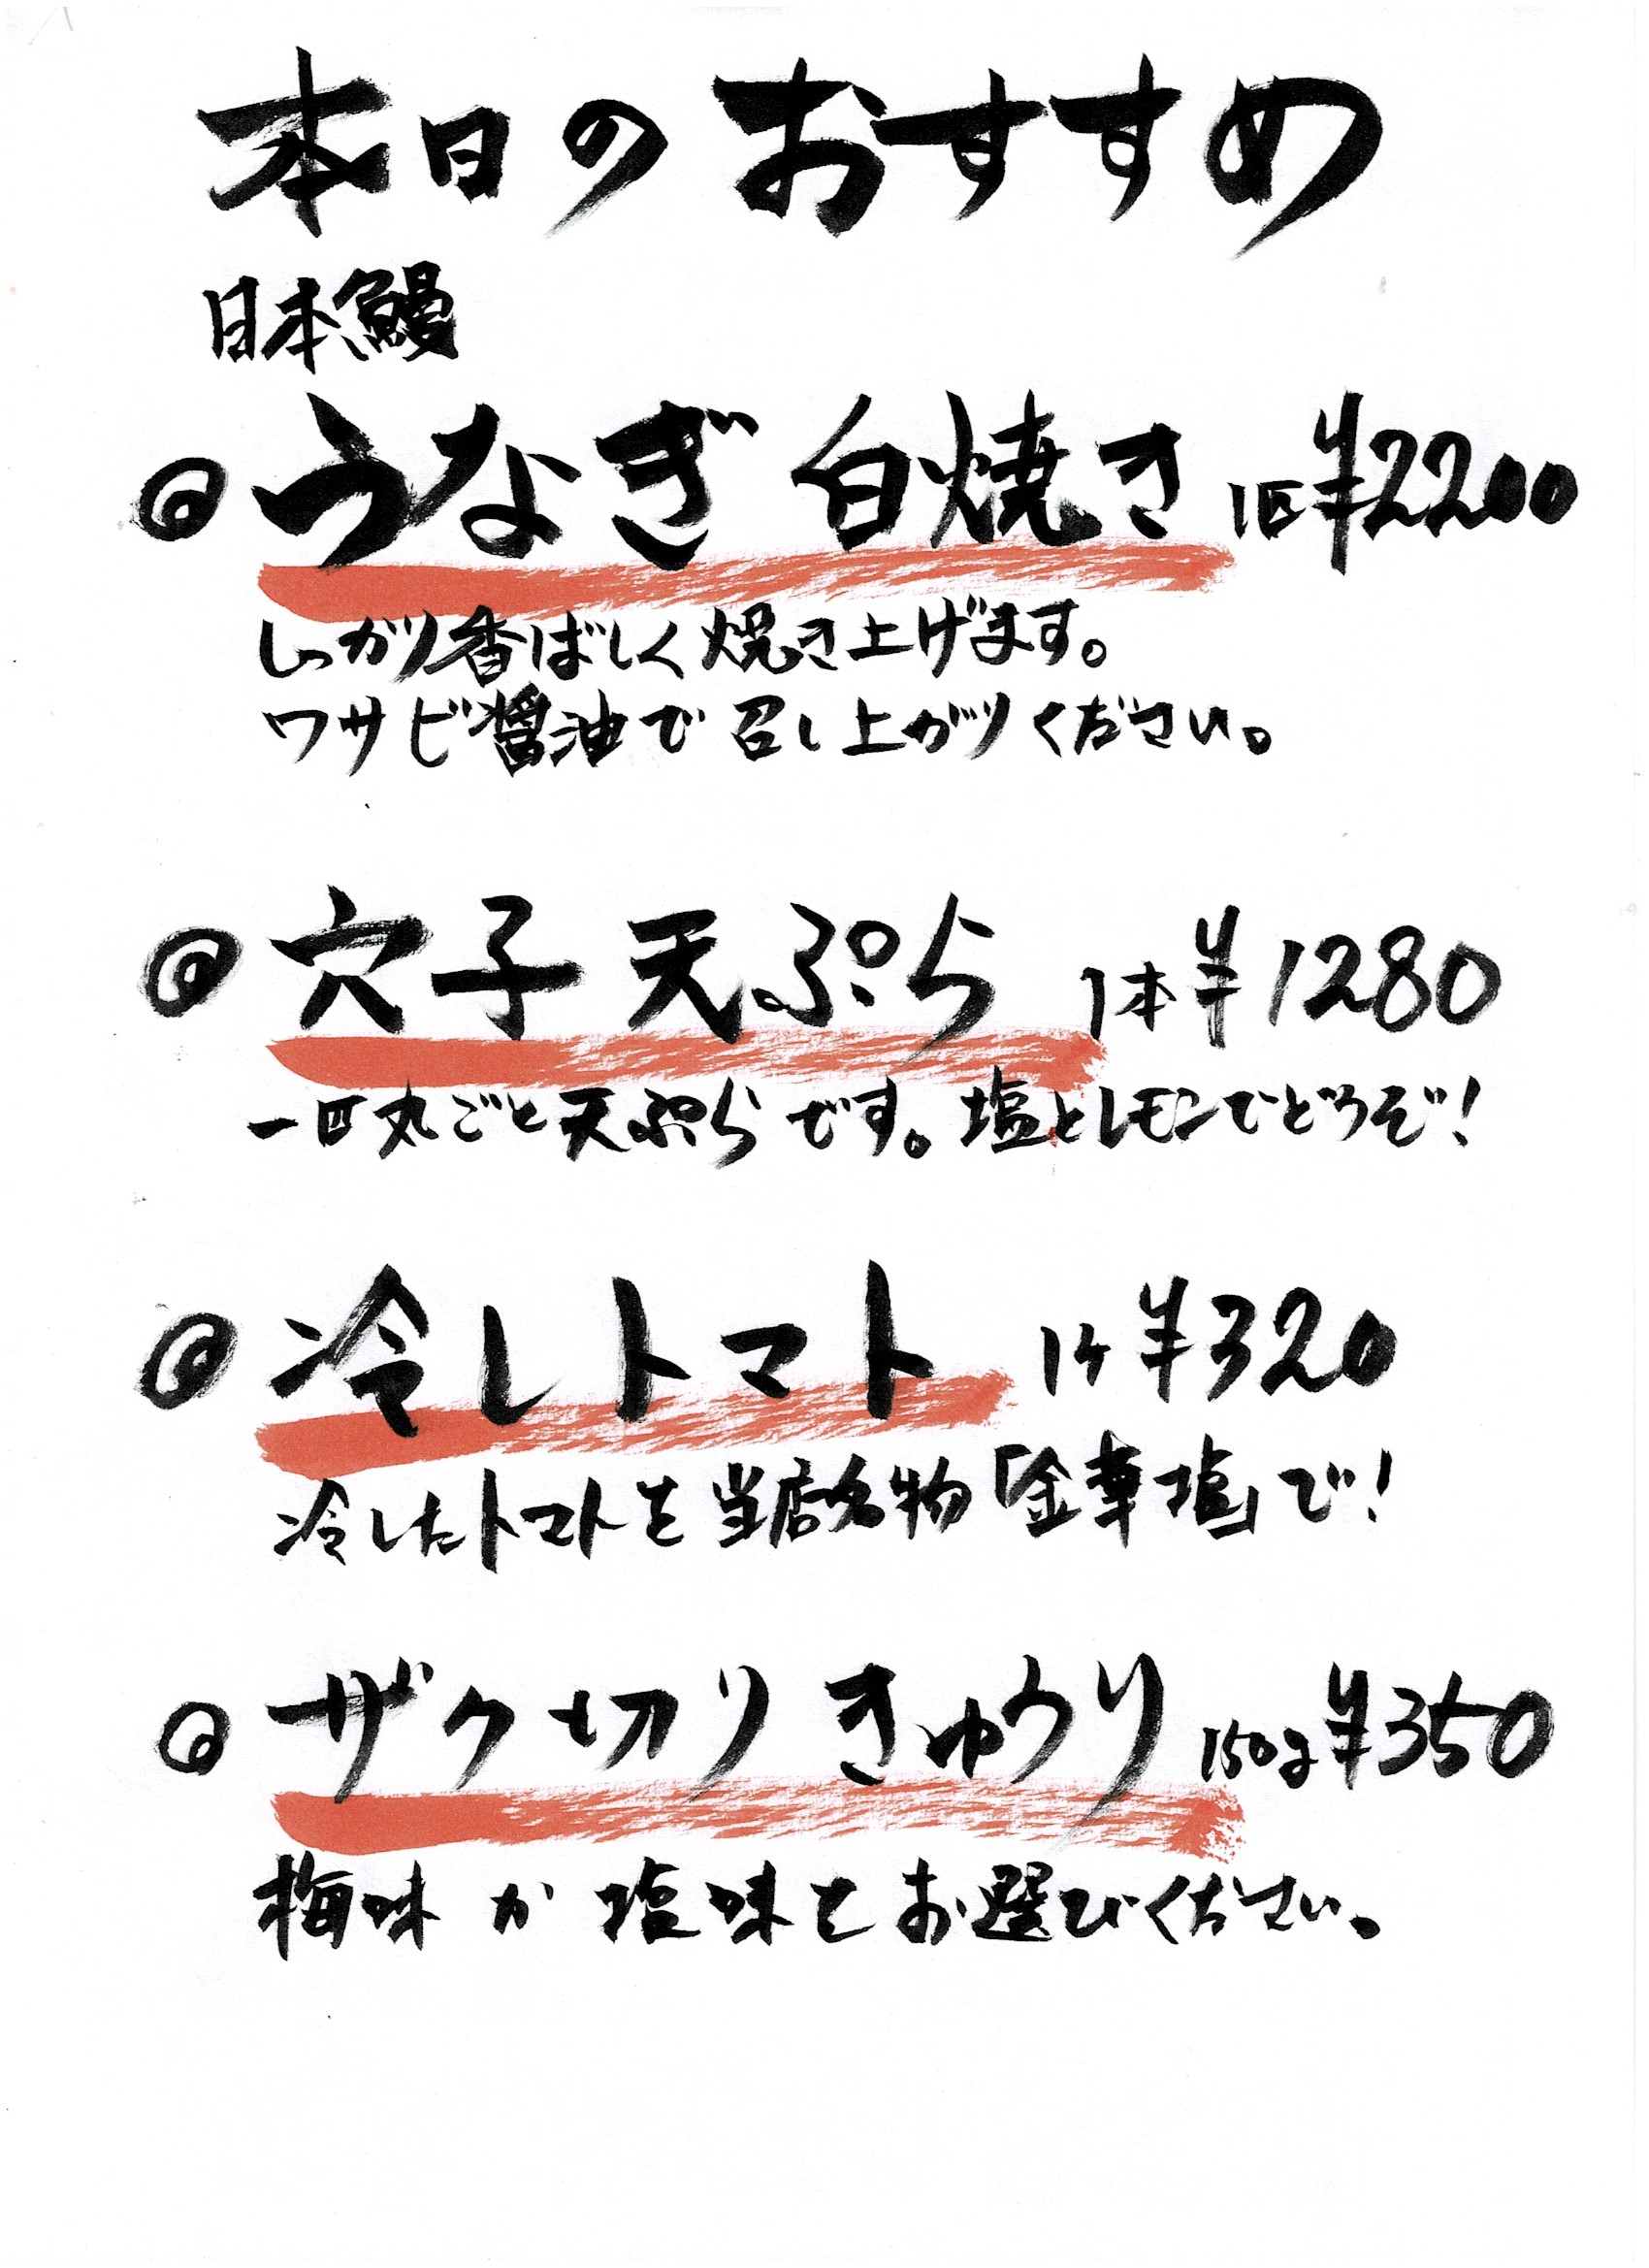 本日のおすすめ
日本鰻
◎うなぎ 白焼き 1匹¥2200
しっかり香ばしく焼き上げます。
ワサビ醤油で召し上がりください。
◎穴子 天ぷら 1本¥1280
一匹丸ごと天ぷらです。塩とレモンでどうぞ!
◎冷しトマト 1ケ¥320
冷したトマトを当店名物「金華塩」で!
◎ザク切りきゅうり 150g¥350
梅味か塩味をお選びください。